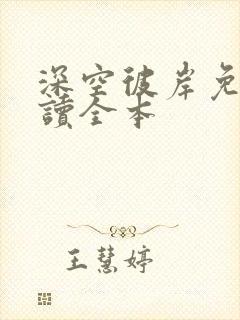 深空彼岸免
讀全本
王慧婷